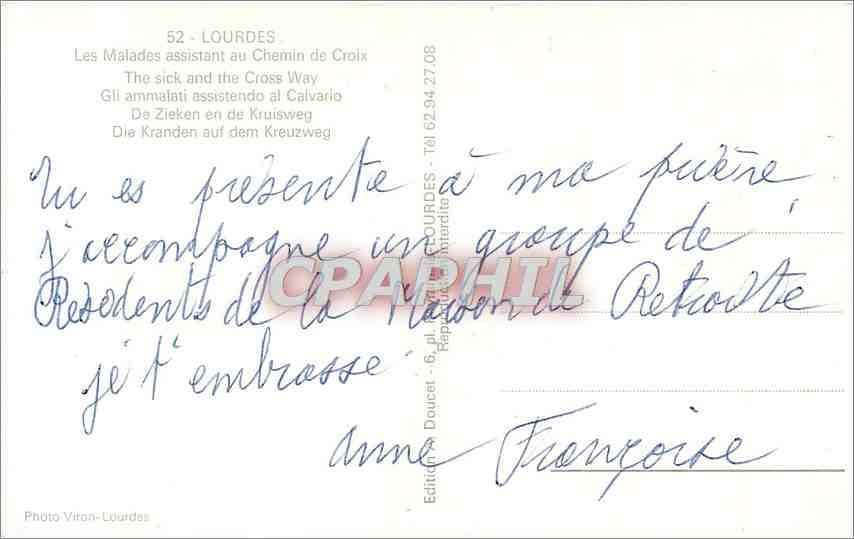 52 - LOURDES
Les Malades assistant au Chemin de Croix
The sick and the Cross Way
Gli ammalati assistendo al Calvario
De Zieken en de Kruisweg
Die Kranden auf dem Kreuzweg
Tu es présente à ma prière,
j'accompagne un groupe de
Résidents de la Maison de Retraite
je t'embrasse
Anne Françoise
Edition A. Doucet - 6, pl. LOURDES - Tél 62.94.27.08
Reproduction interdite
CPAPHIL
Photo Viron-Lourdes